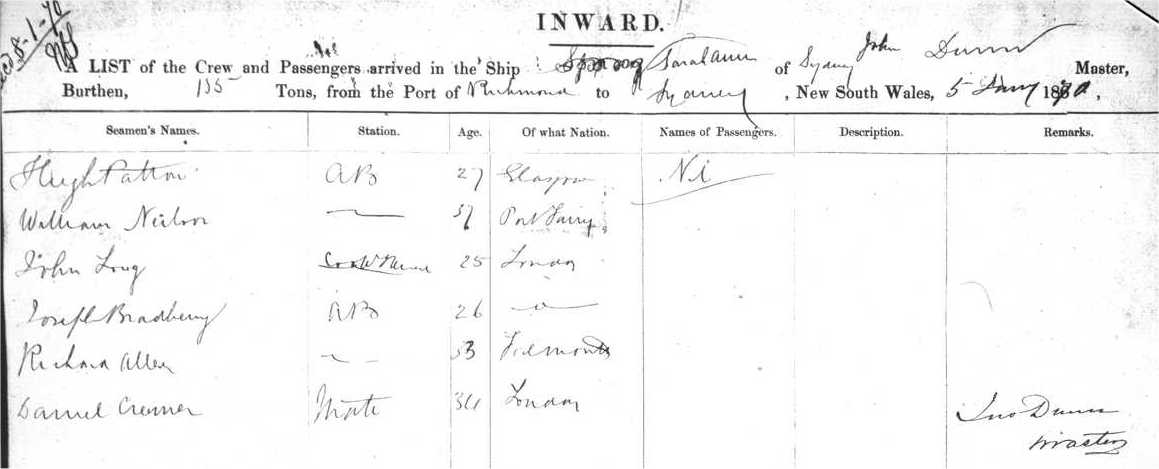 8-1-70
INWARD.
A LIST of the Crew and Passengers arrived in the Ship Sarah Ann of Sydney John Dunn Master,
Burthen, 155 Tons, from the Port of Richmond to Sydney , New South Wales, 5 Jany 1870 ,
Seamen's Names. Station. Age. Of what Nation. Names of Passengers. Description. Remarks.
Hugh Patton AB 27 Glasgow Nil
William Neilson 37 Port Fairy
John Long 25 London
Joseph Bradberry AB 26
Richard Allen
Daniel Cremer Mate 34 London Jno Dunn
Master